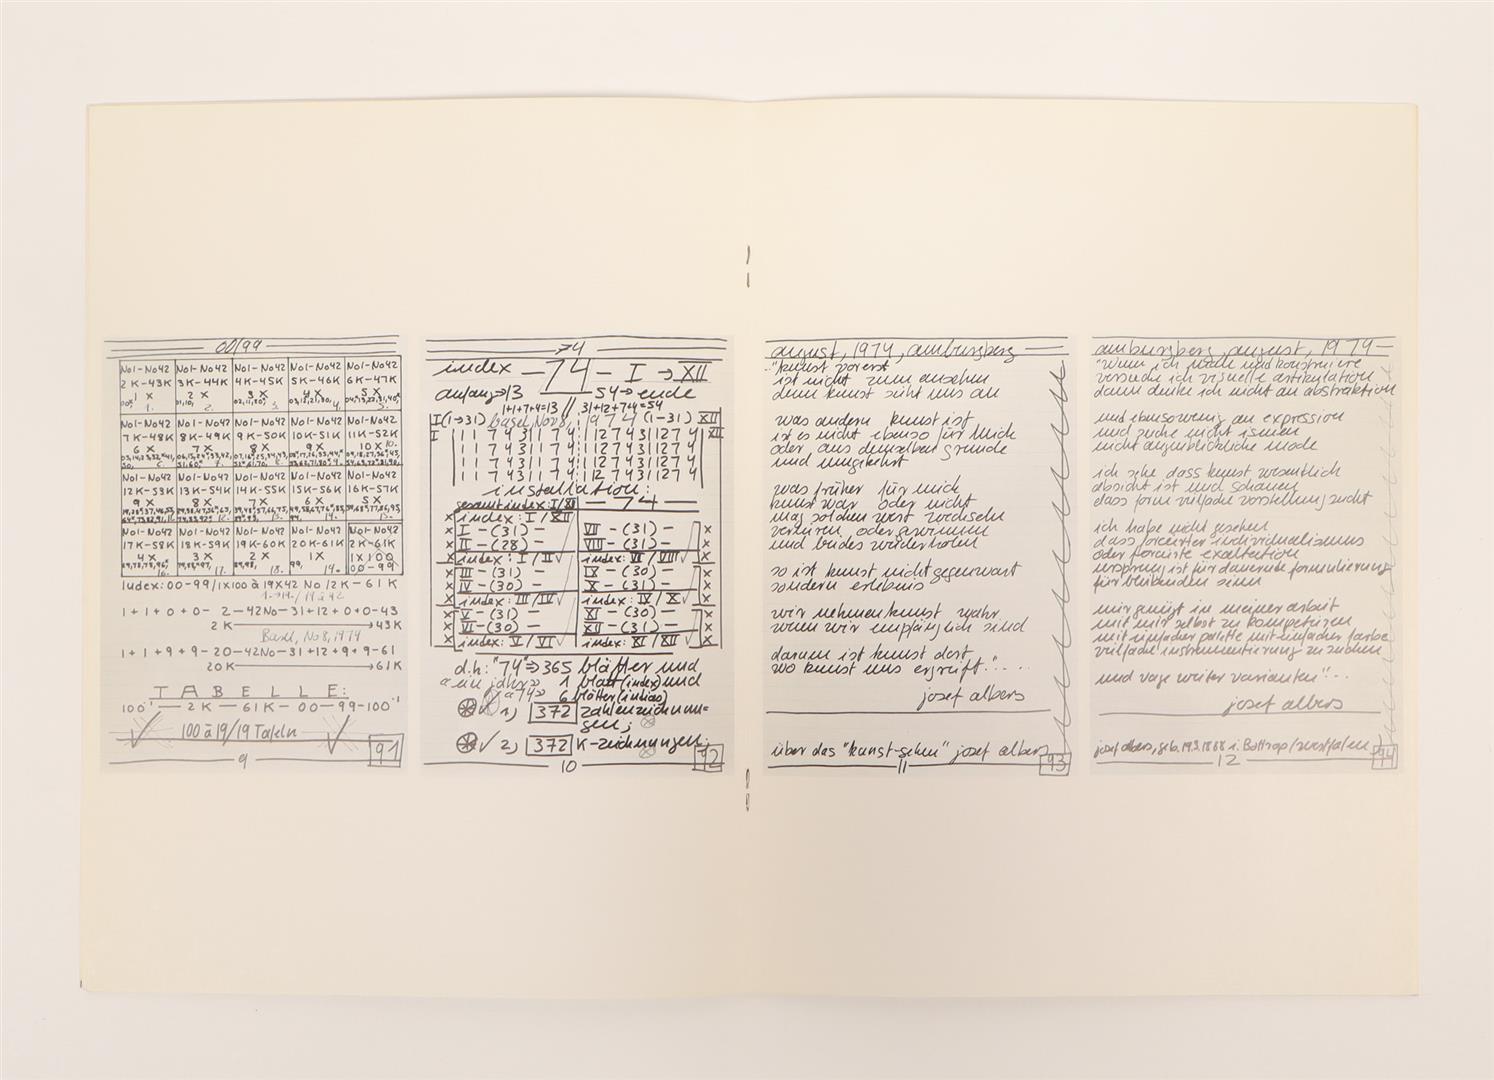 00/99
No1-No42 No1-No42 No1-No42 No1-No42 No1-No42
2K-43K 3K-44K 4K-45K 5K-46K 6K-47K
1 X 2 X 3 X 4 X 5 X
1. 2. 3. 4. 5.
No1-No42 No1-No42 No1-No42 No1-No42 No1-No42
7K-48K 8K-49K 9K-50K 10K-51K 11K-52K
6 X 7 X 8 X 9 X 10 X
No1-No42 No1-No42 No1-No42 No1-No42 No1-No42
12K-53K 13K-54K 14K-55K 15K-56K 16K-57K
9 X 8 X 7 X 6 X 5 X
No1-No42 No1-No42 No1-No42 No1-No42 No1-No42
17K-58K 18K-59K 19K-60K 20K-61K 2K-61K
4 X 3 X 2 X 1 X 1 X 100
00-99
Index: 00-99/1X100 à 19X42 No/2K-61K
1+1+0+0- 2-42No-31+12+0+0-43
2K → 43K
Basel, No8, 1974
1+1+9+9-20-42No-31+12+9+9-61
20K → 61K
TABELLE:
100'-2K-61K-00-99-100'
100 à 19/19 Tafeln
91
9
74
index -74- I → XII
anfang → 13 54 → ende
1+1+7+4=13 // 31+12+7+4=54
I (1→31) basel, No8, 1974 (1-31) XII
I 1 1 7 4 31 1 7 4 1 12 7 4 31 12 7 4 XII
1 1 7 4 31 1 7 4 1 12 7 4 31 12 7 4
1 1 7 4 31 1 7 4 1 12 7 4 31 12 7 4
1 1 7 4 31 1 7 4 1 12 7 4 31 12 7 4
installation:
gesamtindex: I/XII - 74 -
x index: I/XII
x I - (31) - VII - (31) - x
x II - (28) - VIII - (31) - x
x index: I/II index: VII/VIII x
x III - (31) - IX - (30) - x
x IV - (30) - X - (31) - x
x index: III/IV index: IX/X x
x V - (31) - XI - (30) - x
x VI - (30) - XII - (31) - x
x index: V/VI index: XI/XII x
d.h: "74" ⇒ 365 blätter und
1 blatt (index) und
6 blätter (indices)
1) 372 zahlenzeichnun=
gen;
2) 372 K-zeichnungen.
92
10
august, 1974, amburgberg
"kunst vorerst
ist nicht zum ansehen
denn kunst sieht uns an
was andern kunst ist
ist es nicht ebenso für mich
oder aus demselben grunde
und umgekehrt
was früher für mich
kunst war oder nicht
mag solchen wert wechseln
verlieren oder gewinnen
und beides wiederholen
so ist kunst nicht gegenwart
sondern erlebnis
wir nehmen kunst wahr
wenn wir empfänglich sind
darum ist kunst dort
wo kunst uns ergreift."....
josef albers
über das "kunst-sehen" josef albers
93
11
amburgberg, august, 1974-
"wenn ich male und konstruiere
versuche ich visuelle artikulation
dann denke ich nicht an abstraktion
und ebensowenig an expression
und suche nicht ismen
nicht augenblickliche mode
ich sehe dass kunst wesentlich
absicht ist und schauen
dass form vielfache vorstellung sucht
ich habe nicht gesehen
dass forcierter individualismus
oder forcierte exaltation
ursprung ist für dauernde formulierung
für bleibenden sinn
mir genügt in meiner arbeit
mit mir selbst zu kompetieren
mit einfacher palette mit einfacher farbe
vielfache instrumentierung zu suchen
und wage weiter varianten"...
josef albers
josef albers, geb. 19.3.1888 i. Bottrop/westfalen
94
12